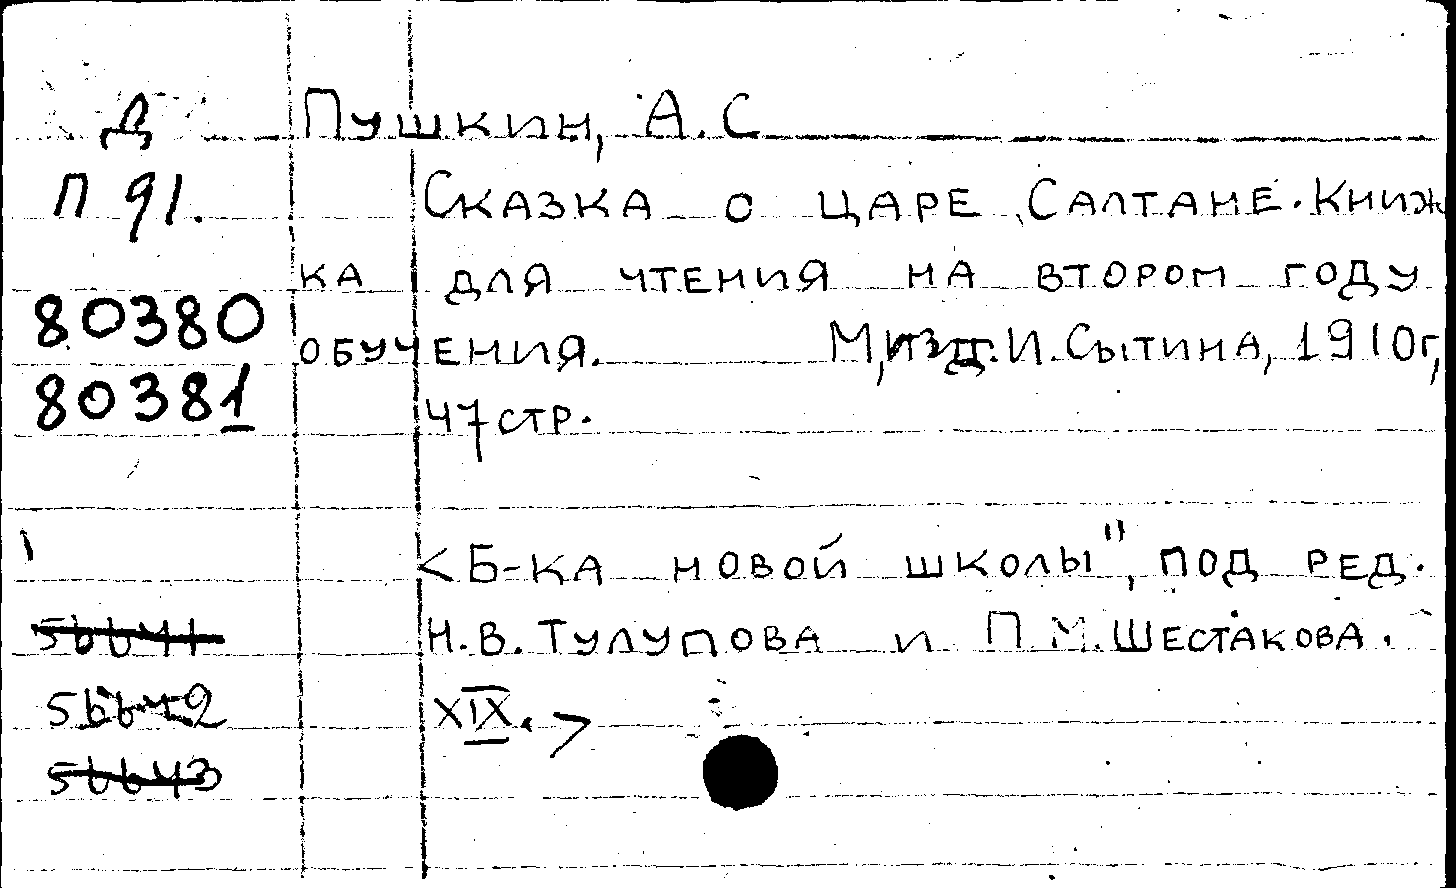 Д
Пушкин, А.С
П 91.
Сказка о царе Салтане. Книж
ка для чтения на втором году
80380
обучения. М, изд. И. Сытина, 1910г,
80381
47 стр.
<Б-ка новой школы", под ред.
56641
Н.В. Тулупова и П.М. Шестакова.
56642
XIX. >
56643